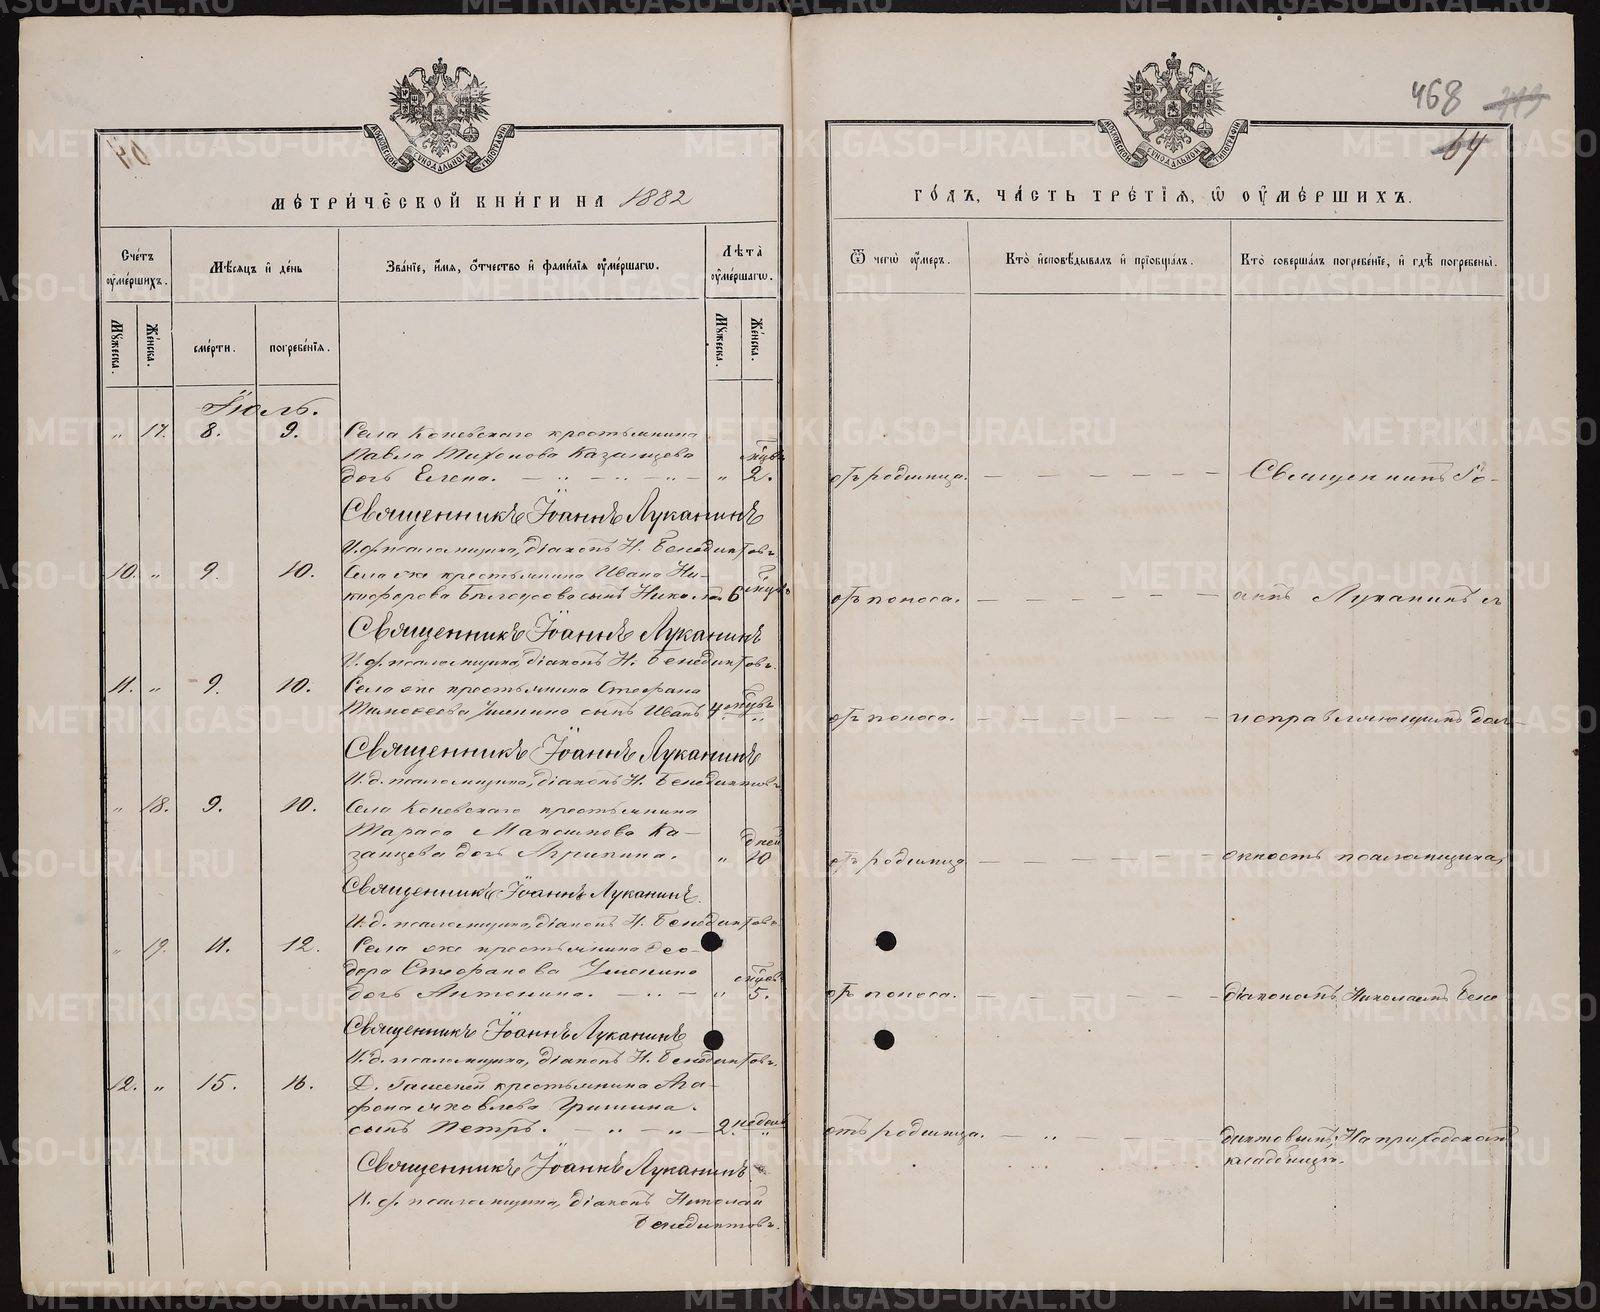 МЕТРИ́ЧЕСКОЙ КНИ́ГИ НА 1882
Сче́тъ ᲂу҆ме́ршихъ.
Мѣ́сяцъ и҆ де́нь
Зва́нїе, и҆́мя, ѻ҆́тчество и҆ фами́лїя ᲂу҆ме́ршагѡ.
Лѣ́та ᲂу҆ме́ршагѡ.
Мꙋ́жеска.
Же́нска.
сме́рти.
погребе́нїя.
Мꙋ́жеска.
Же́нска.
Іюль.
„ 17. 8. 9. Села Коневскаго крестьянина
Павла Тихонова Казанцева мѣсяц.
дочь Елена. — „ — „ — „ — „ 2.
Священникъ Іоаннъ Луканинъ
И. д. псаломщика, діаконъ Н. Бенедиктовъ
10. „ 9. 10. Села же крестьянина Ивана Ни-
кифорова Бѣлоусова сынъ Николай 6 мѣсяц.
Священникъ Іоаннъ Луканинъ
И. д. псаломщика, діаконъ Н. Бенедиктовъ.
11. „ 9. 10. Села же крестьянина Стефана
Тимофеева Ушенина сынъ Иванъ 4 мѣсяц.
Священникъ Іоаннъ Луканинъ
И. д. псаломщика, діаконъ Н. Бенедиктовъ
„ 18. 9. 10. Села Коневскаго крестьянина
Тараса Максимова Ка- дней
занцева дочь Агрипина. „ 10
Священникъ Іоаннъ Луканинъ.
И. д. псаломщика, діаконъ Н. Бенедиктовъ
„ 19. 11. 12. Села же крестьянина Ѳео-
дора Стефанова Ушенина мѣсяц.
дочь Антонина. — „ — „ 5.
Священникъ Іоаннъ Луканинъ
И. д. псаломщика, діаконъ Н. Бенедиктовъ.
12. „ 15. 16. Д. крестьянина Ага-
фона Яковлева Гришина.
сынъ Петръ. — „ — „ — 2. недель „
Священникъ Іоаннъ Луканинъ.
И. д. псаломщика, діаконъ Николай
Бенедиктовъ.
468
64
ГО́ДЪ, ЧА́СТЬ ТРЕ́ТЇЯ, Ѡ҆ ОУ҆МЕ́РШИХЪ.
Ѿ чегѡ̀ ᲂу҆́меръ.
Кто̀ и҆сповѣ́дывалъ и҆ прїѡбща́лъ.
Кто̀ соверша́лъ погребе́нїе, и҆ гдѣ̀ погребены̀.
отъ родимца. — — — — — — Священникъ Іо-
отъ поноса. — — — — — — аннъ Луканинъ съ
отъ поноса. — — — — — — исправляющимъ дол-
отъ родимца — — — — — — жность псаломщика,
отъ поноса. — — — — — — діакономъ Николаемъ Бене
отъ родимца. — „ — — — — диктовымъ. На приходскомъ
кладбищѣ.